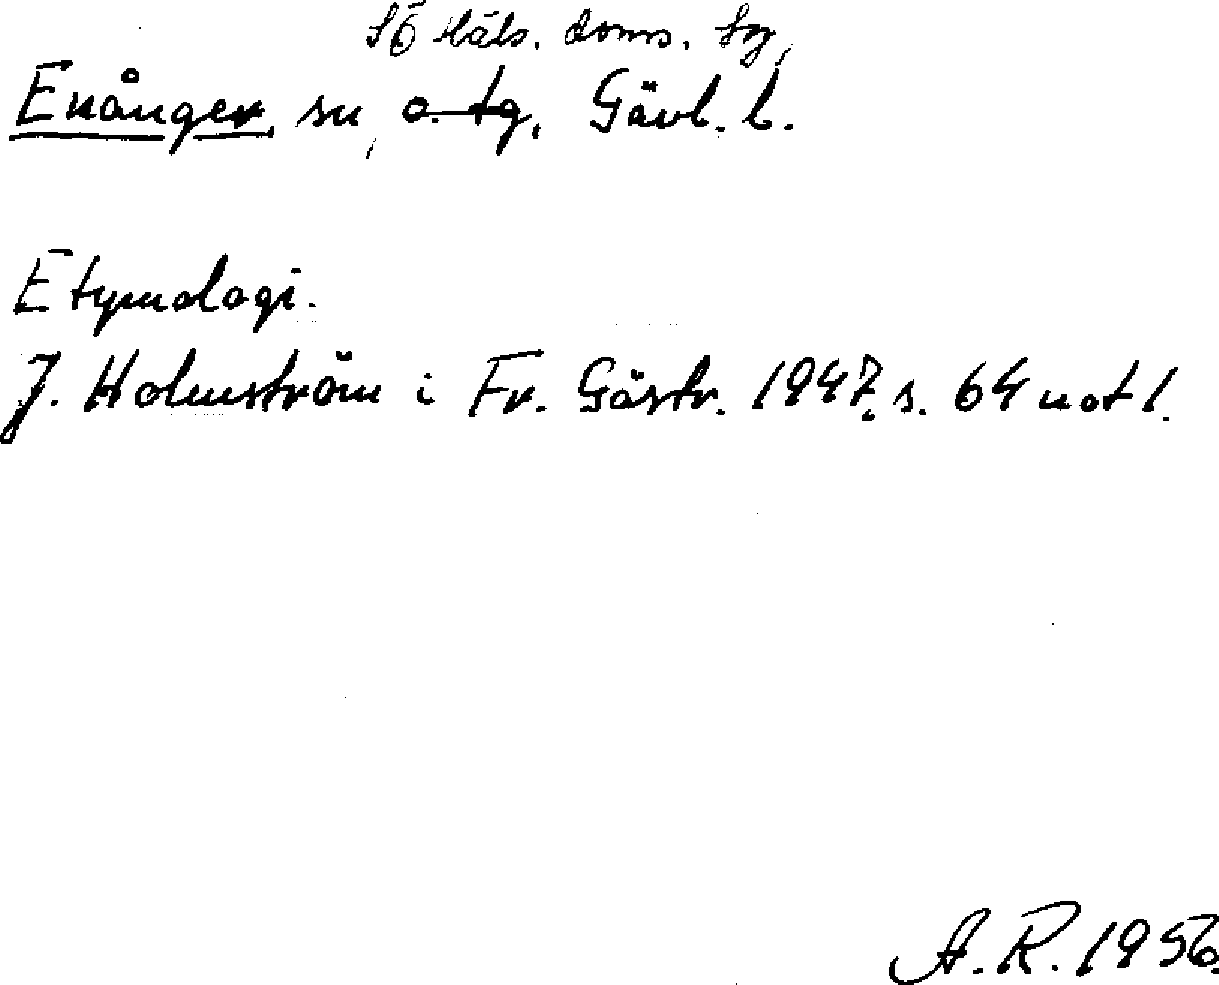 SÖ Häls. doms. tg,
Enånger, sn, o. tg, Gävl. l.
Etymologi.
J. Holmström i Fr. Gästr. 1947, s. 64 not 1.
A. R. 1956.